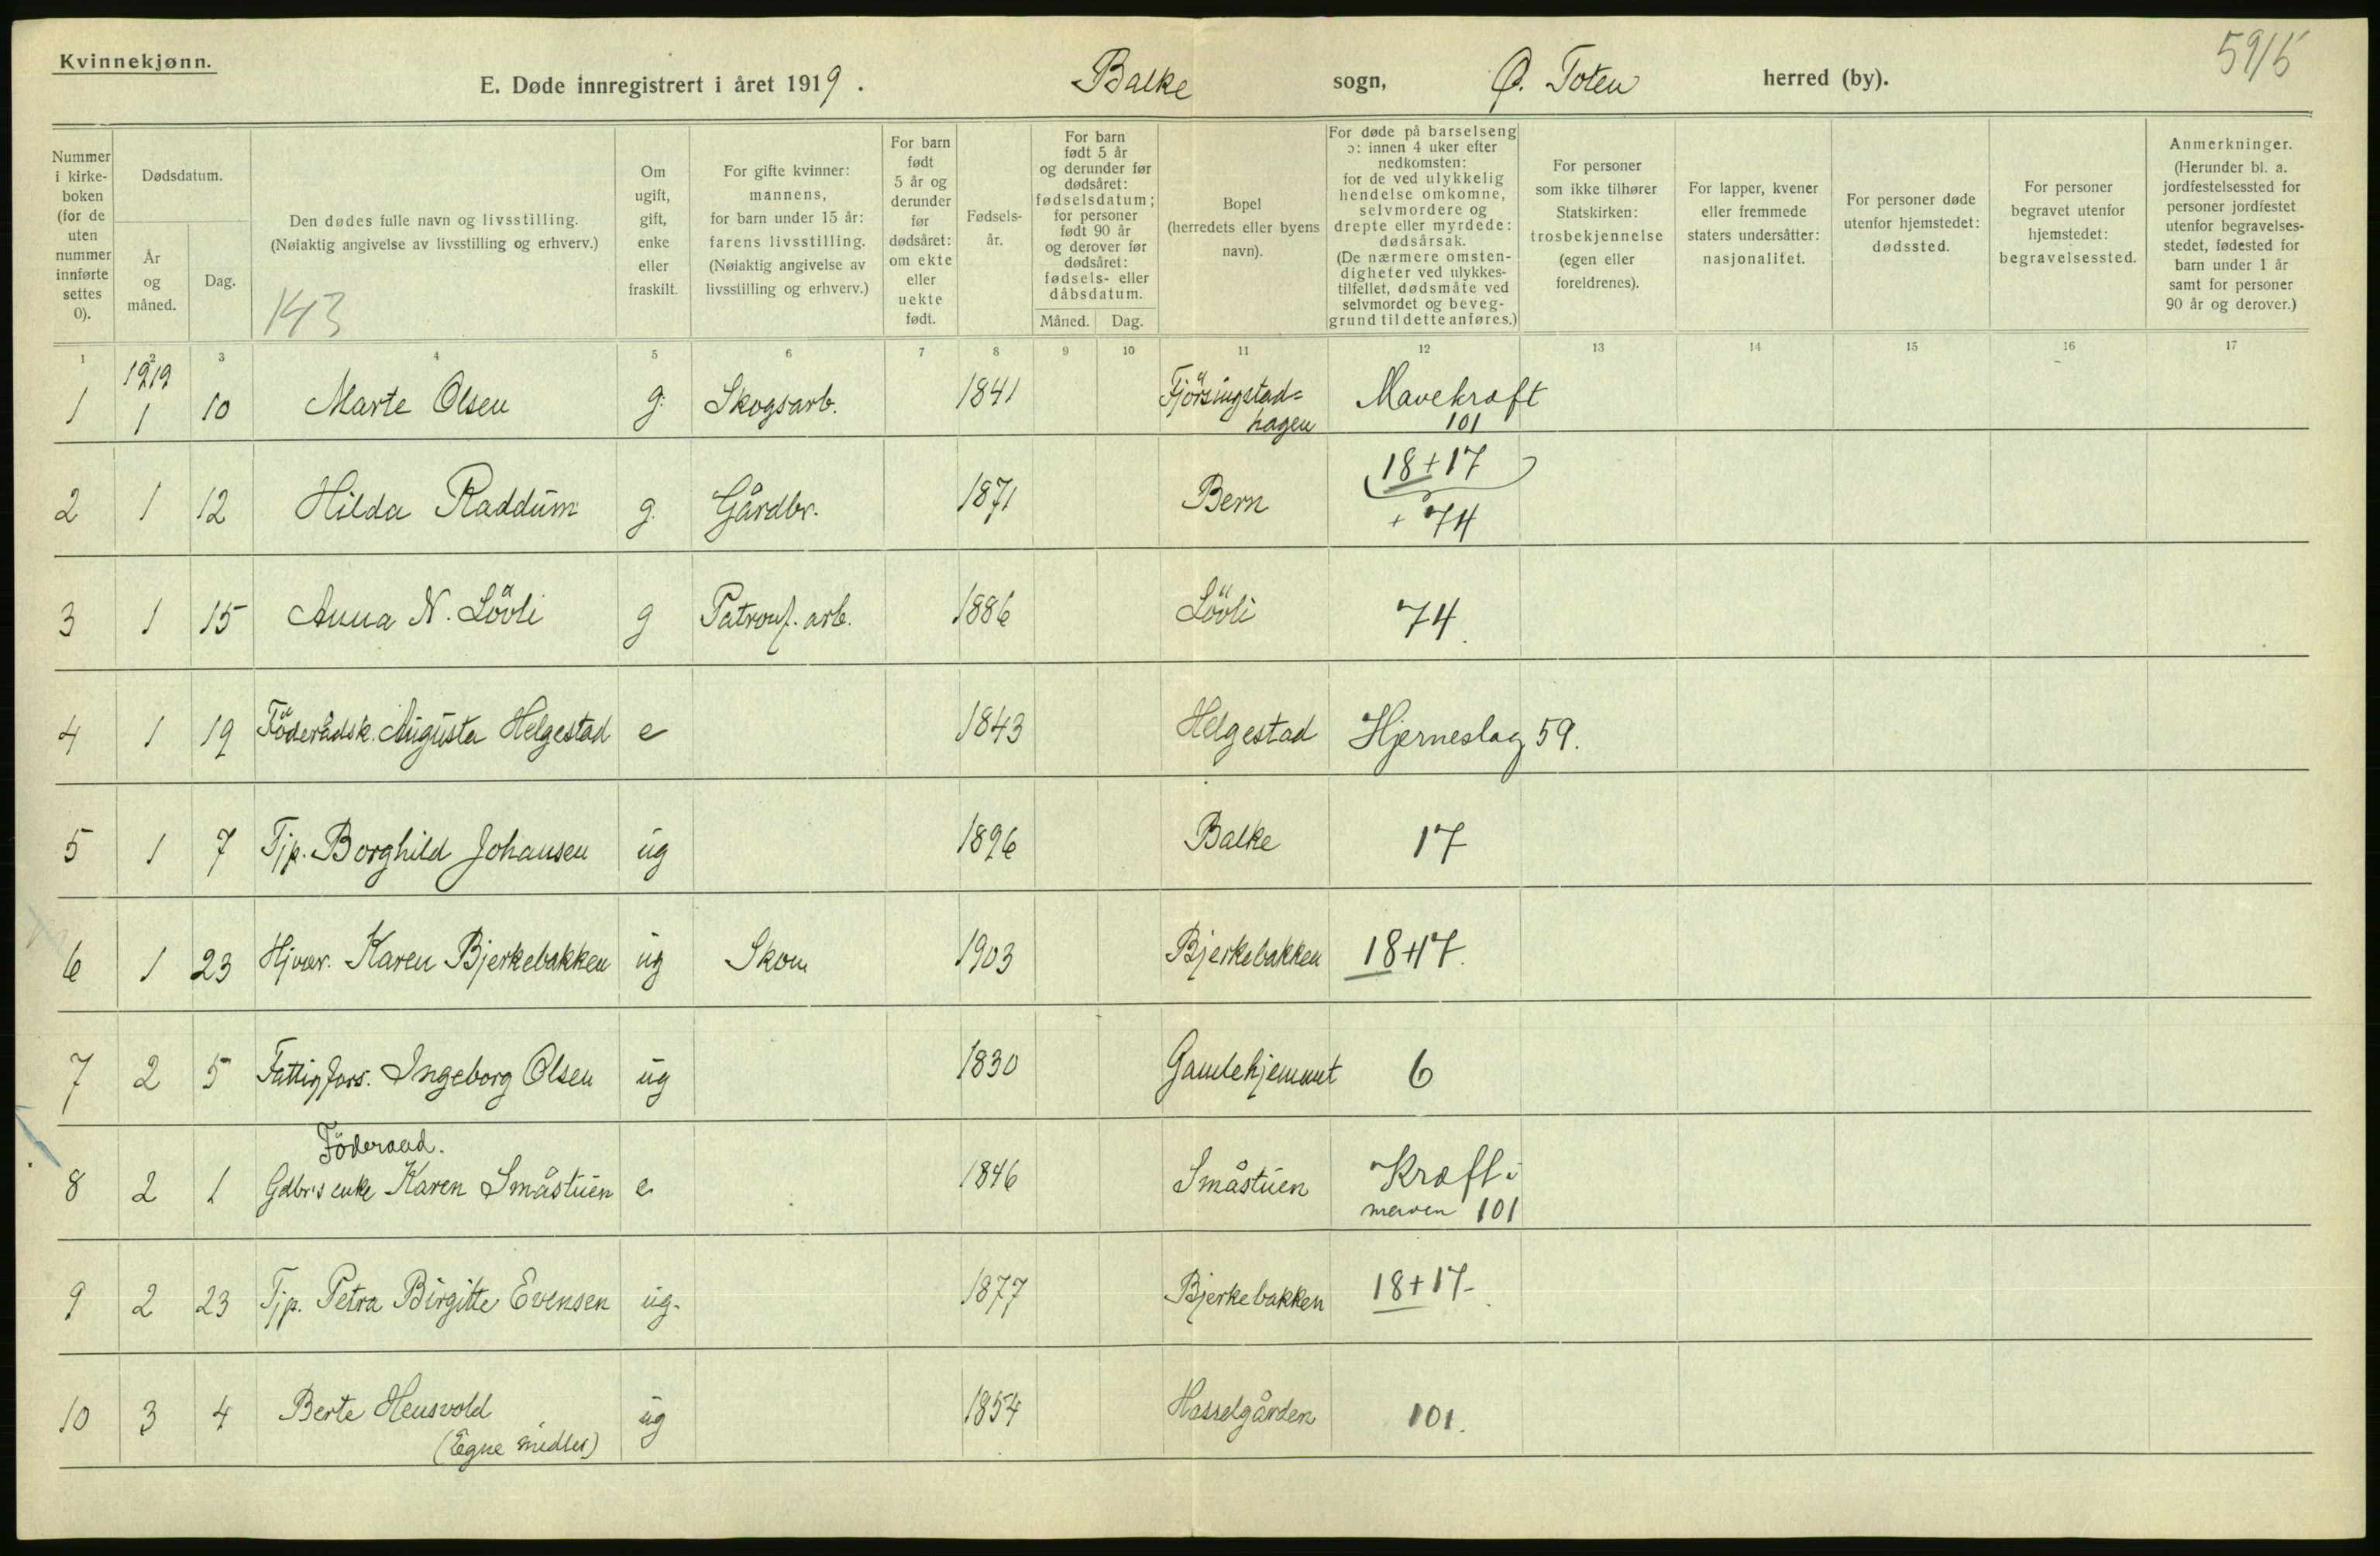 Kvinnekjønn.
E. Døde innregistrert i året 1919.
Balke sogn, Ø. Toten herred (by).
5915
Nummer i kirke-boken (for de uten nummer innførte settes 0).
Dødsdatum.
År og måned.
Dag.
Den dødes fulle navn og livsstilling.
(Nøiaktig angivelse av livsstilling og erhverv.)
143
Om ugift, gift, enke eller fraskilt.
For gifte kvinner: mannens, for barn under 15 år: farens livsstilling. (Nøiaktig angivelse av livsstilling og erhverv.)
For barn født 5 år og derunder før dødsåret: om ekte eller uekte født.
Fødsels-år.
For barn født 5 år og derunder før dødsåret: fødselsdatum; for personer født 90 år og derover før dødsåret: fødsels- eller dåbsdatum.
Måned. Dag.
Bopel (herredets eller byens navn).
For døde på barselseng ɔ: innen 4 uker efter nedkomsten: for de ved ulykkelig hendelse omkomne, selvmordere og drepte eller myrdede: dødsårsak. (De nærmere omsten-digheter ved ulykkes-tilfellet, dødsmåte ved selvmordet og beveg-grund til dette anføres.)
For personer som ikke tilhører Statskirken: trosbekjennelse (egen eller foreldrenes).
For lapper, kvener eller fremmede staters undersåtter: nasjonalitet.
For personer døde utenfor hjemstedet: dødssted.
For personer begravet utenfor hjemstedet: begravelsessted.
Anmerkninger. (Herunder bl. a. jordfestelsessted for personer jordfestet utenfor begravelses-stedet, fødested for barn under 1 år samt for personer 90 år og derover.)
1 2 3 4 5 6 7 8 9 10 11 12 13 14 15 16 17
1919
1 1 10 Marte Olsen g. Skogsarb. 1841 Fjörsingstad=
hagen Mavekræft
101
2 1 12 Hilda Raddum g. Gårdbr. 1871 Bern 18+17
+ 74
3 1 15 Anna N. Lövli g Patronf. arb. 1886 Lövli 74
4 1 19 Föderådsk. Augusta Helgestad e 1843 Helgestad Hjerneslag 59.
5 1 7 Tjp. Borghild Johansen ug 1896 Balke 17
6 1 23 Hjvær. Karen Bjerkebakken ug Skom 1903 Bjerkebakken 18+17.
7 2 5 Fattigfors. Ingeborg Olsen ug 1830 Gamlehjemmet 6
Föderaad.
8 2 1 Gdbr's enke Karen Småstuen e 1846 Småstuen Kræft i
maven 101
9 2 23 Tjp. Petra Birgitte Evensen ug. 1877 Bjerkebakken 18+17-
10 3 4 Berte Hensvold ug 1854 Hasselgården 101.
(Egne midler)